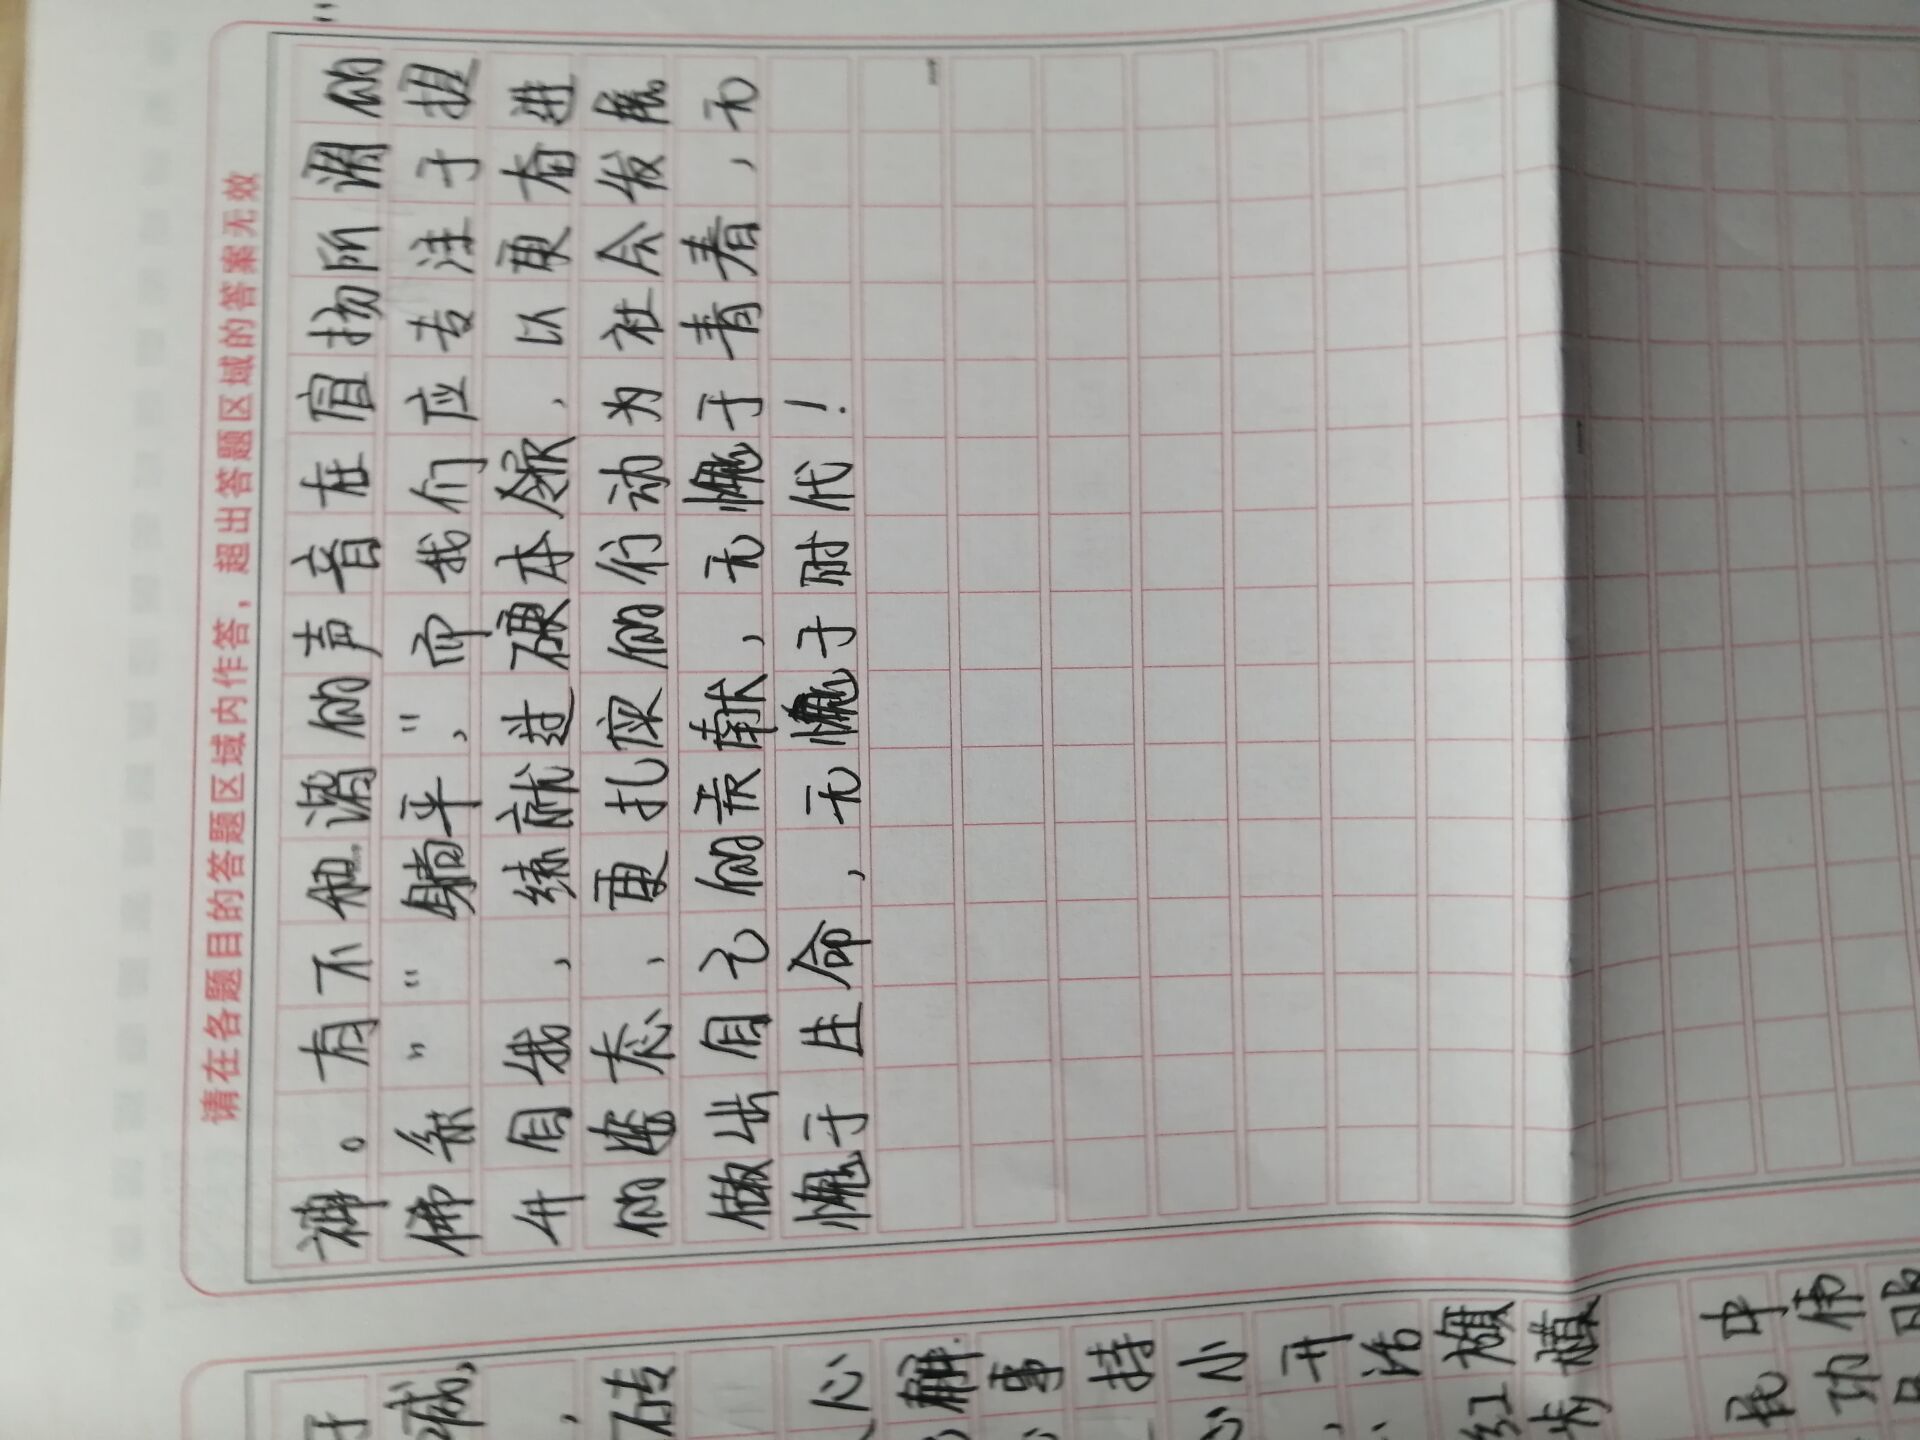 请在各题目的答题区域内作答，超出答题区域的答案无效
神。有不和谐的声音在宣扬所谓的
佛系”“躺平，”而我们应专注于提
升自我，练就过硬本领，以更奋进
的姿态，更扎实的行动为社会发展
做出自己的贡献，无愧于青春，无
愧于生命，无愧于时代！
于
砖
心
解.
事
持
心小
，开
活
红旗
卡模
民中
功伟